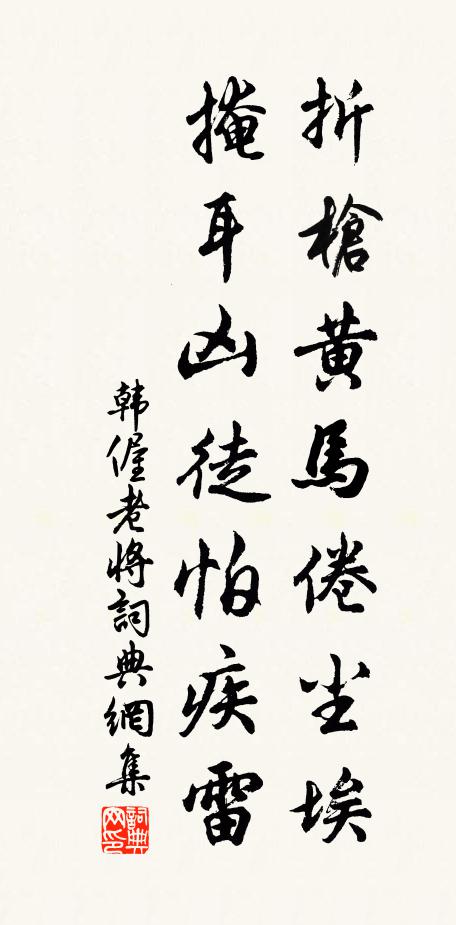 折槍黄馬倦尘埃
掩耳凶徒怕疾雷
韩偓老将詞典網集
詞典
网印